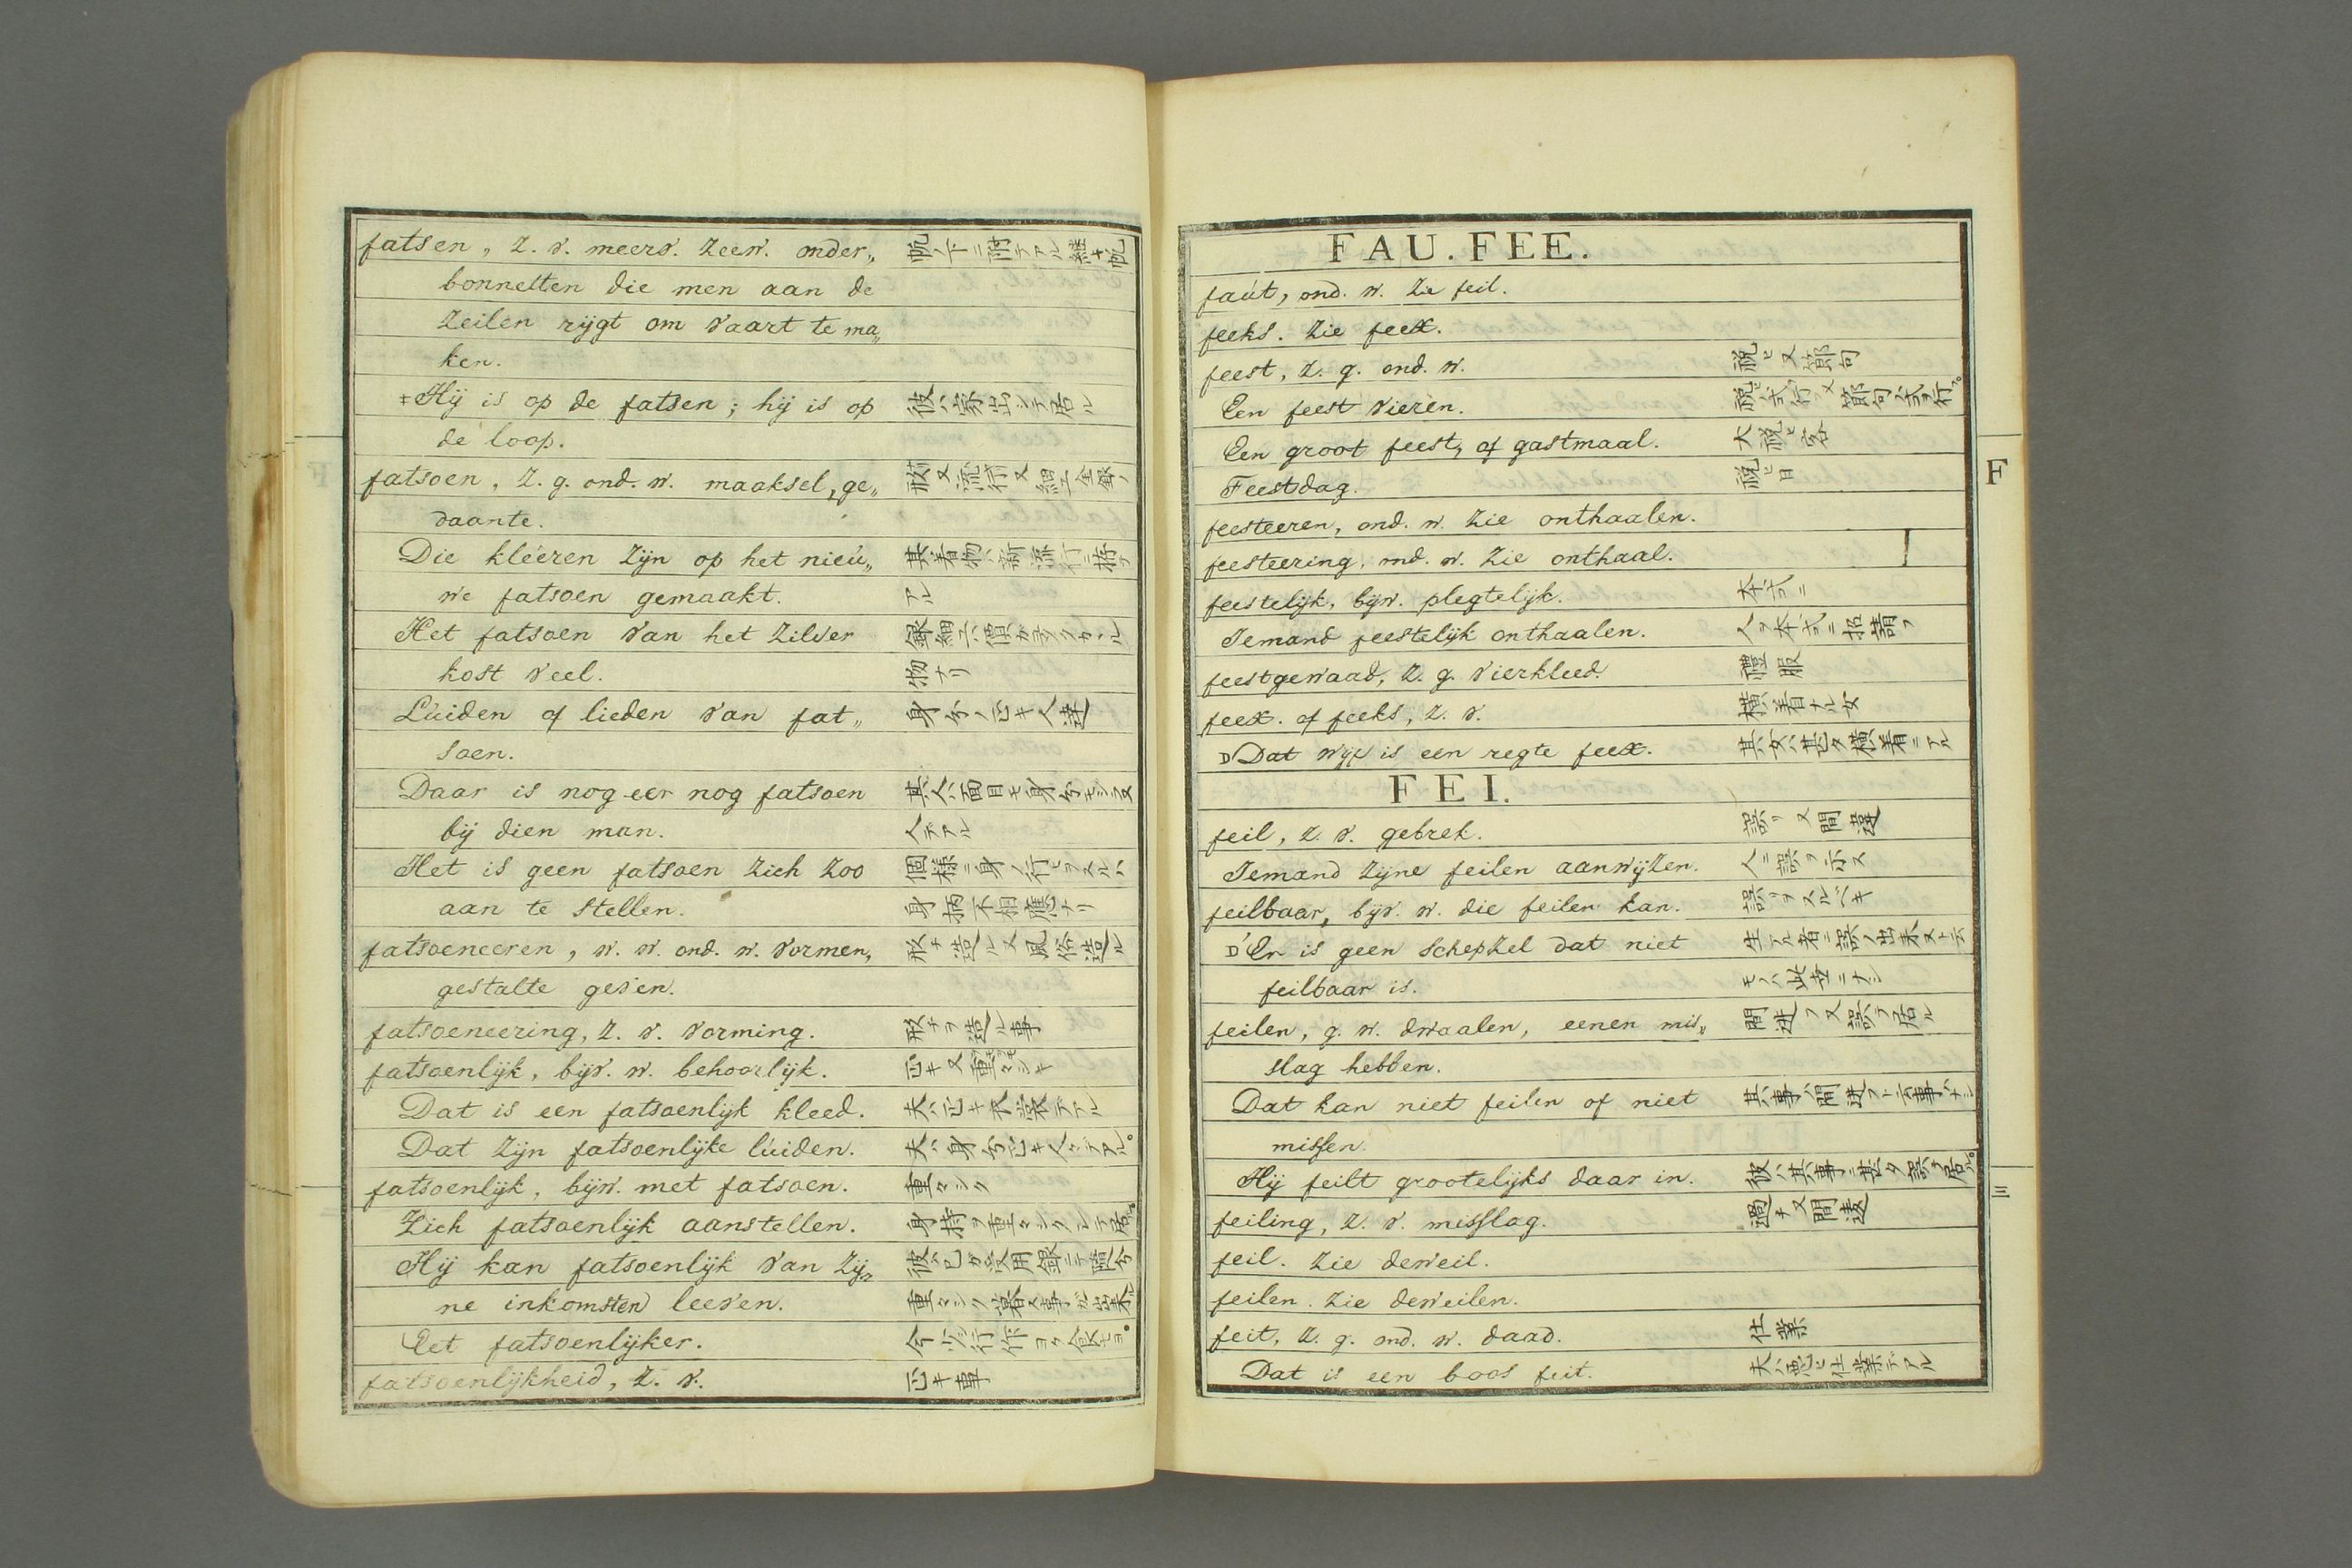 fatsen, z. v. meerv. zeew. onder„ 帆ノ下ニ附テアル継キ帆
bonnetten die men aan de
zeilen rijgt om vaart te ma„
ken.
‡Hij is op de fatsen; hij is op 彼ハ家出シテ居ル
de loop.
fatsoen, z. g. ond. w. maaksel, ge„
daante.
Die kléeren zijn op het nieú„ 其着物ハ新流行ニ拵テ
we fatsoen gemaakt. アル
Het fatsoen van het zilver
kost veel. 物ナリ
Lúiden of lieden van fat„ 身分ノ正キ人達
soen.
Daar is nog eer nog fatsoen 其人ハ面目モ身分モシラヌ
bij dien man. 人デアル
Het is geen fatsoen zich zoo 個様ニ身ノ行ヒヲスルハ
aan te stellen. 身柄不相應ナリ
fatsoeneeren, w. w. ond. w. vormen, 形チ造ル又風俗造ル
gestalte geven.
fatsoeneering, z. v. vorming. 形チヲ造ル事
fatsoenlijk, bijv. w. behoorlijk. 正キ又重々シキ
Dat is een fatsoenlijk kleed. 夫ハ正キ衣裳デアル
Dat zijn fatsoenlijke lúiden. 夫ハ身分正キ人々デアル。
fatsoenlijk, bijw. met fatsoen. 重々シク
Zich fatsoenlijk aanstellen. 身持ヲ重々シクシテ居ル。
Hij kan fatsoenlijk van zij„
ne inkomsten leeven. 重々シク暮ス事ガ出来ル
Eet fatsoenlijker. 今少シ行作ヨク食セヨ。
fatsoenlijkheid, z. v. 正キ事
FAU. FEE.
faút, ond. w. zie feil.
feeks. zie feex.
feest, z. g. ond. w. 祝ヒ又節句
Een feest vieren. 祝ヒ式行フ又節句式ヲ行フ。
Een groot feest, of gastmaal. 大祝ヒ客
Feestdag. 祝ヒ日
feesteeren, ond. w. zie onthaalen.
feesteering, ond. w. zie onthaal.
feestelijk, bijw. plegtelijk. 本式ニ
Iemand feestelijk onthaalen. 人ヲ本式ニ招請フ
feestgewaad, z. g. vierkleed. 禮服
feex. of feeks, z. v. 横着ナル女
D Dat wijf is een regte feex. 其女ハ甚タ横着ニアル
FEI.
feil, z. v. gebrek. 誤リ又間違
Iemand zijne feilen aanwijzen. 人ニ誤ヲ示ス
feilbaar, bijv. w. die feilen kan. 誤リヲスルベキ
D Er is geen schepzel dat niet 生アル者ニ誤ノ出来ヌト云
feilbaar is. モノハ此世ニナシ
feilen, g. w. dwaalen, eenen mis„ 間違フ又誤テ居ル
slag hebben.
Dat kan niet feilen of niet 其事ハ間違フト云事ハナシ
missen.
Hij feilt grootelijks daar in. 彼ハ其事ニ甚タ誤テ居ル。
feiling, z. v. misslag. 過チ又間違
feil. zie deweil.
feilen. zie deweilen.
feit, z. g. ond. w. daad. 仕業
Dat is een boos feit. 夫ハ悪ヒ仕業デアル
F
三